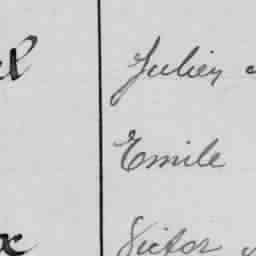 Julien
Emile
Victor